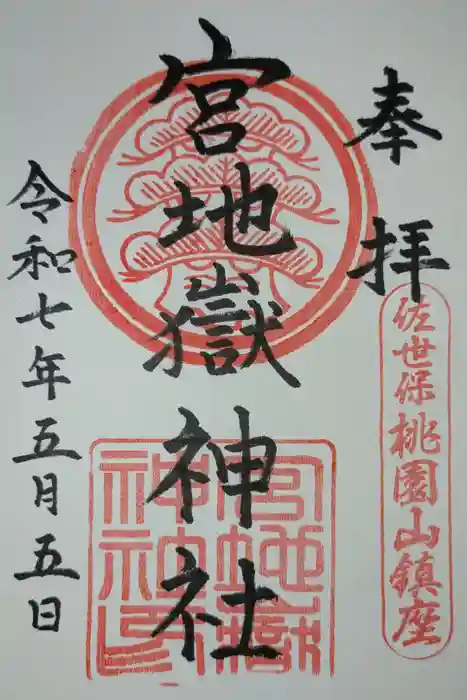 奉拝
佐世保桃園山鎮座
宮地嶽神社
宮地嶽
神社印
令和七年五月五日